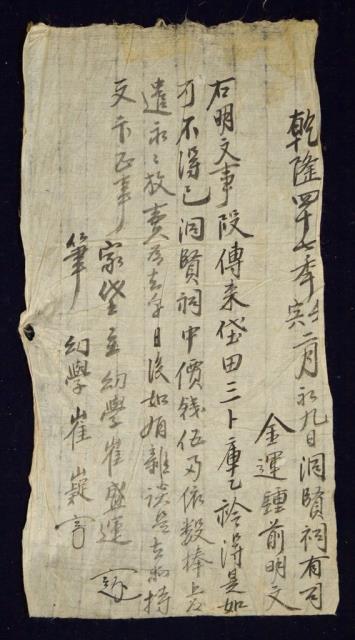 乾隆四十七季壬寅二月初九日洞賢祠有司
金運鍾前明文
右明文事段傳来垈田三卜庫乙於得是如
可不得已洞賢祠中價錢伍両依數捧上是
遣永〻放賣為去乎日後如有雜談是去等持
文卞正事
家垈主幼學崔盛運
筆 幼學崔